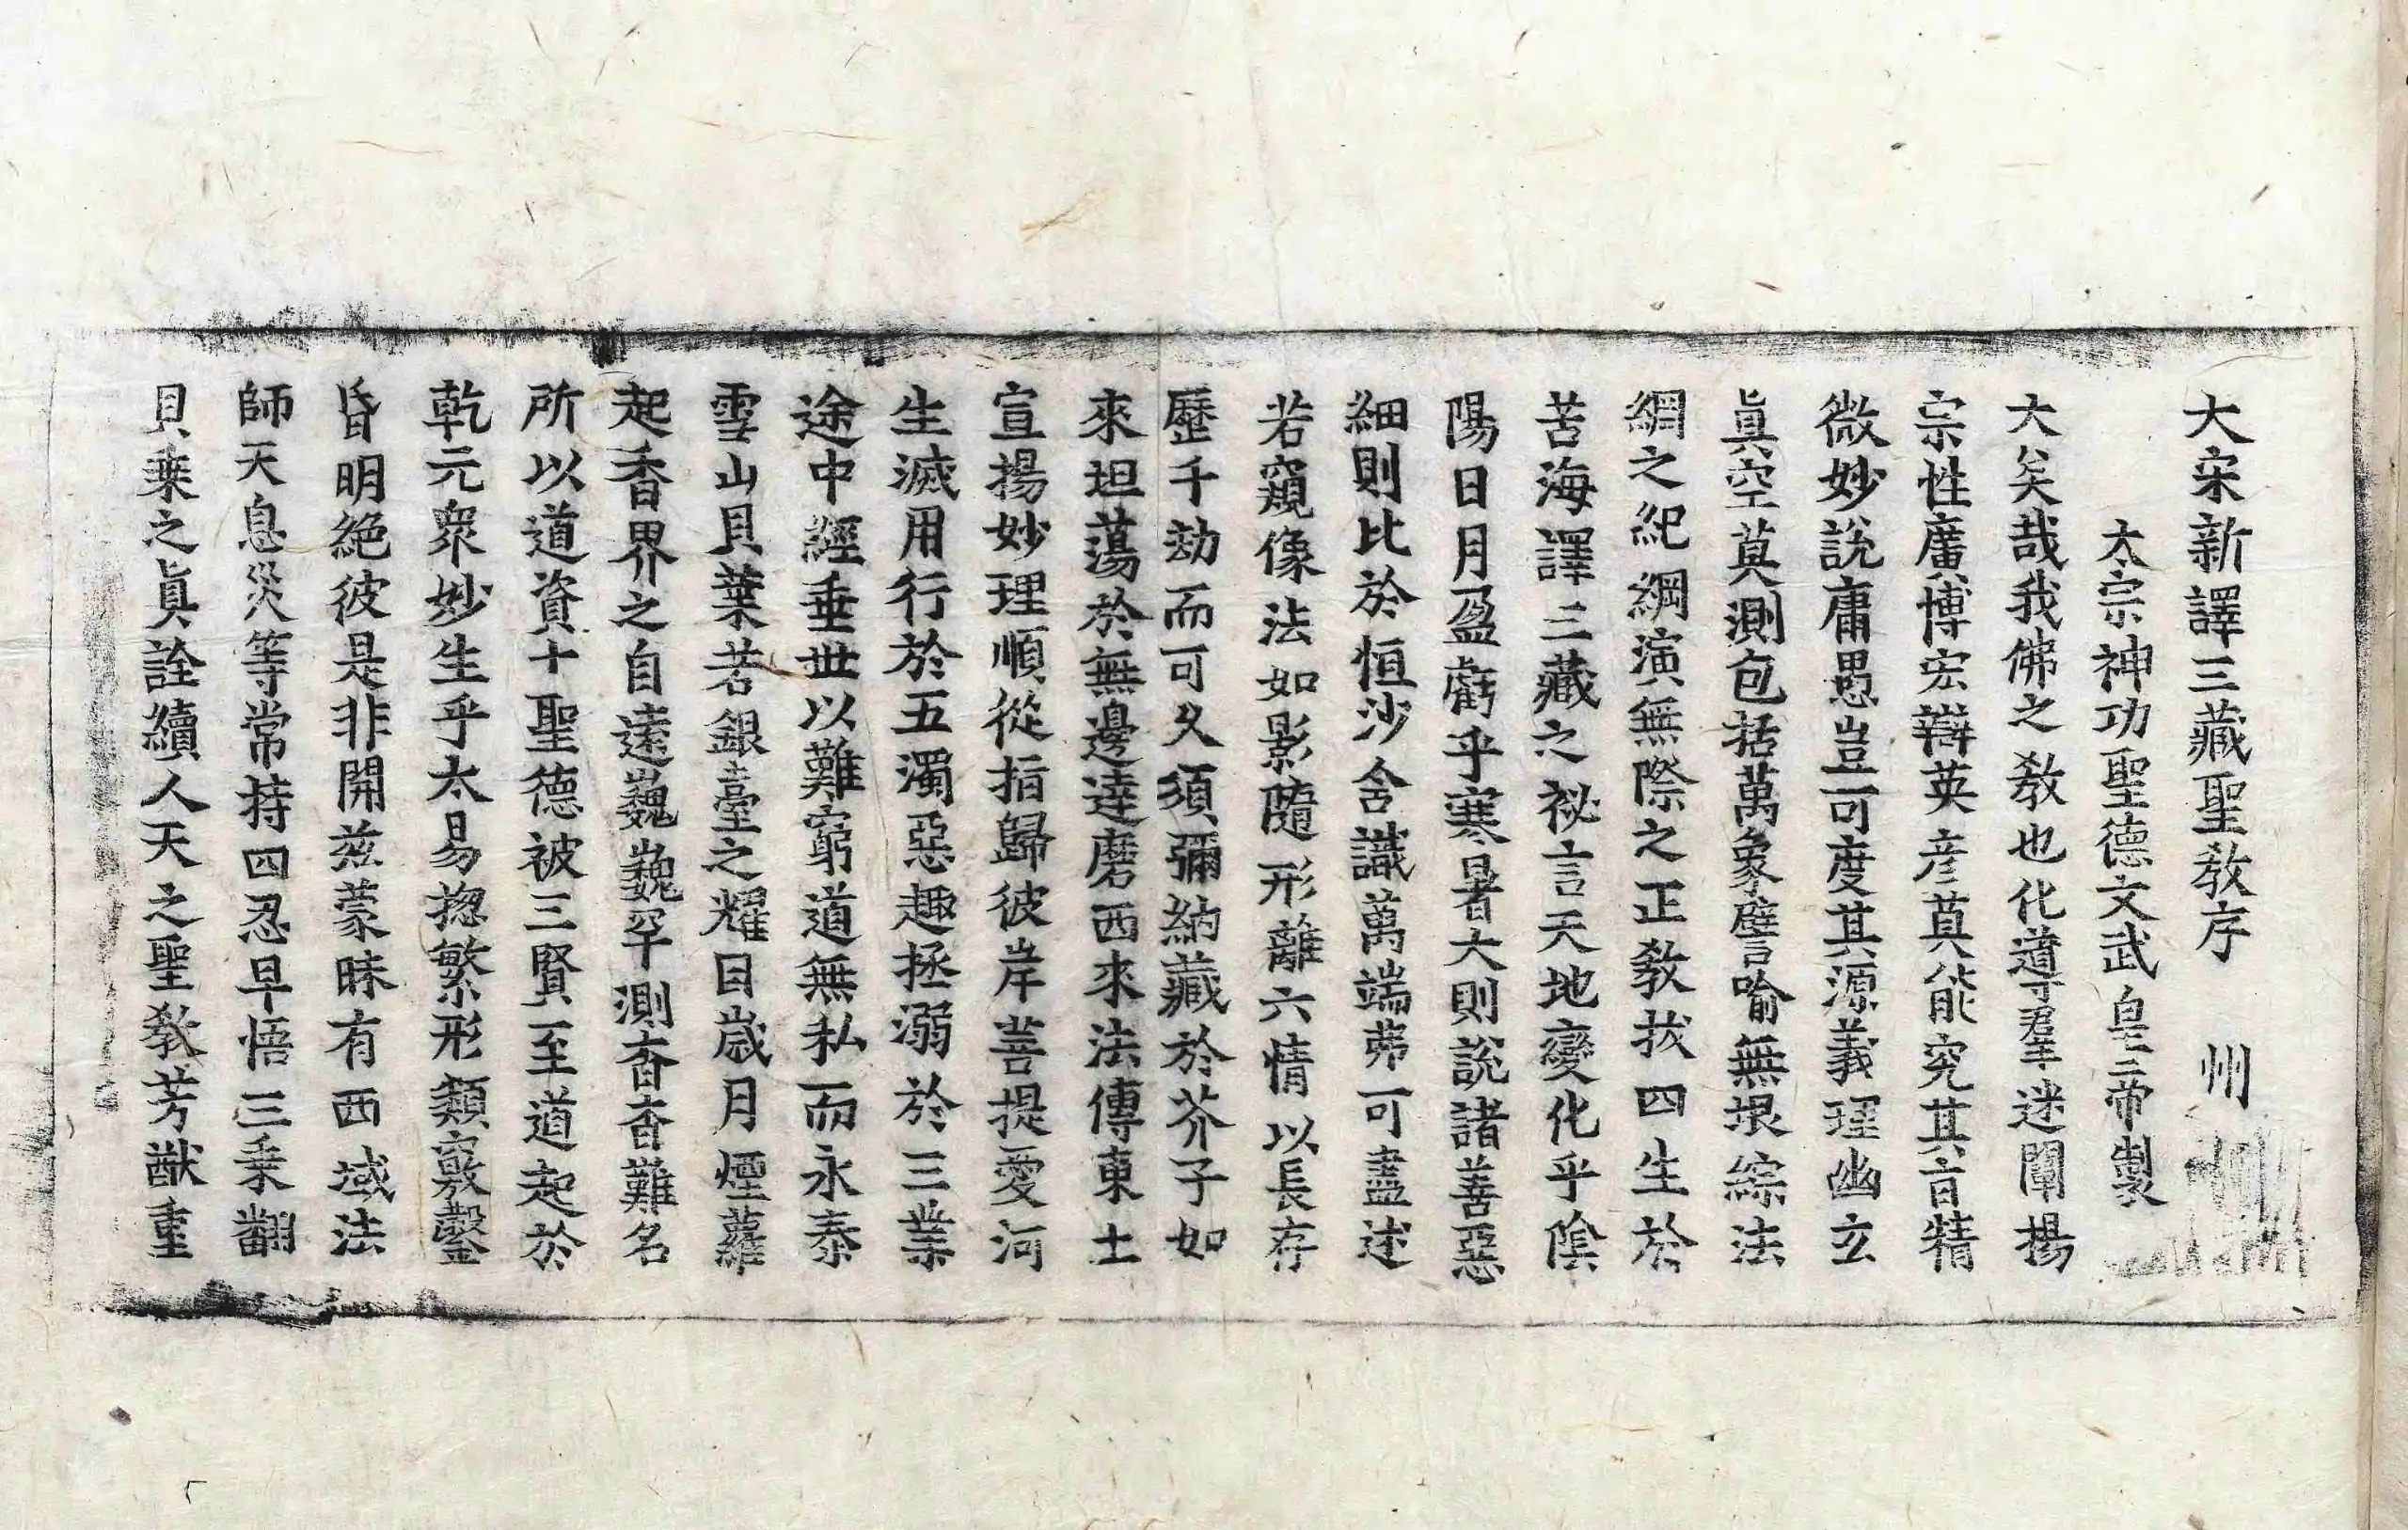 大宋新譯三藏聖敎序 州
太宗神功聖德文武皇帝製
大矣哉我佛之敎也化導羣迷闡揚
宗性廣博宏辯英彦莫能究其旨精
微妙說庸愚豈可度其源義理幽玄
眞空莫測包括萬象譬喻無垠綜法
網之紀綱演無際之正敎拔四生於
苦海譯三藏之祕言天地變化乎陰
陽日月盈虧乎寒暑大則說諸善惡
細則比於恒沙含識萬端弗可盡述
若窺像法如影隨形離六情以長存
歷千劫而可久須彌納藏於芥子如
來坦蕩於無邊達磨西來法傳東土
宣揚妙理順從指歸彼岸菩提愛河
生滅用行於五濁惡趣拯溺於三業
途中經垂世以難窮道無私而永泰
雪山貝葉若銀臺之耀目歲月煙蘿
起香界之自遠巍巍罕測杳杳難名
所以道資十聖德被三賢至道起於
乾元衆妙生乎太易揔繁形類竅鑿
昏明絶彼是非開玆蒙昧有西域法
師天息災等常持四忍早悟三乘翻
貝乘之眞詮續人天之聖敎芳猷重